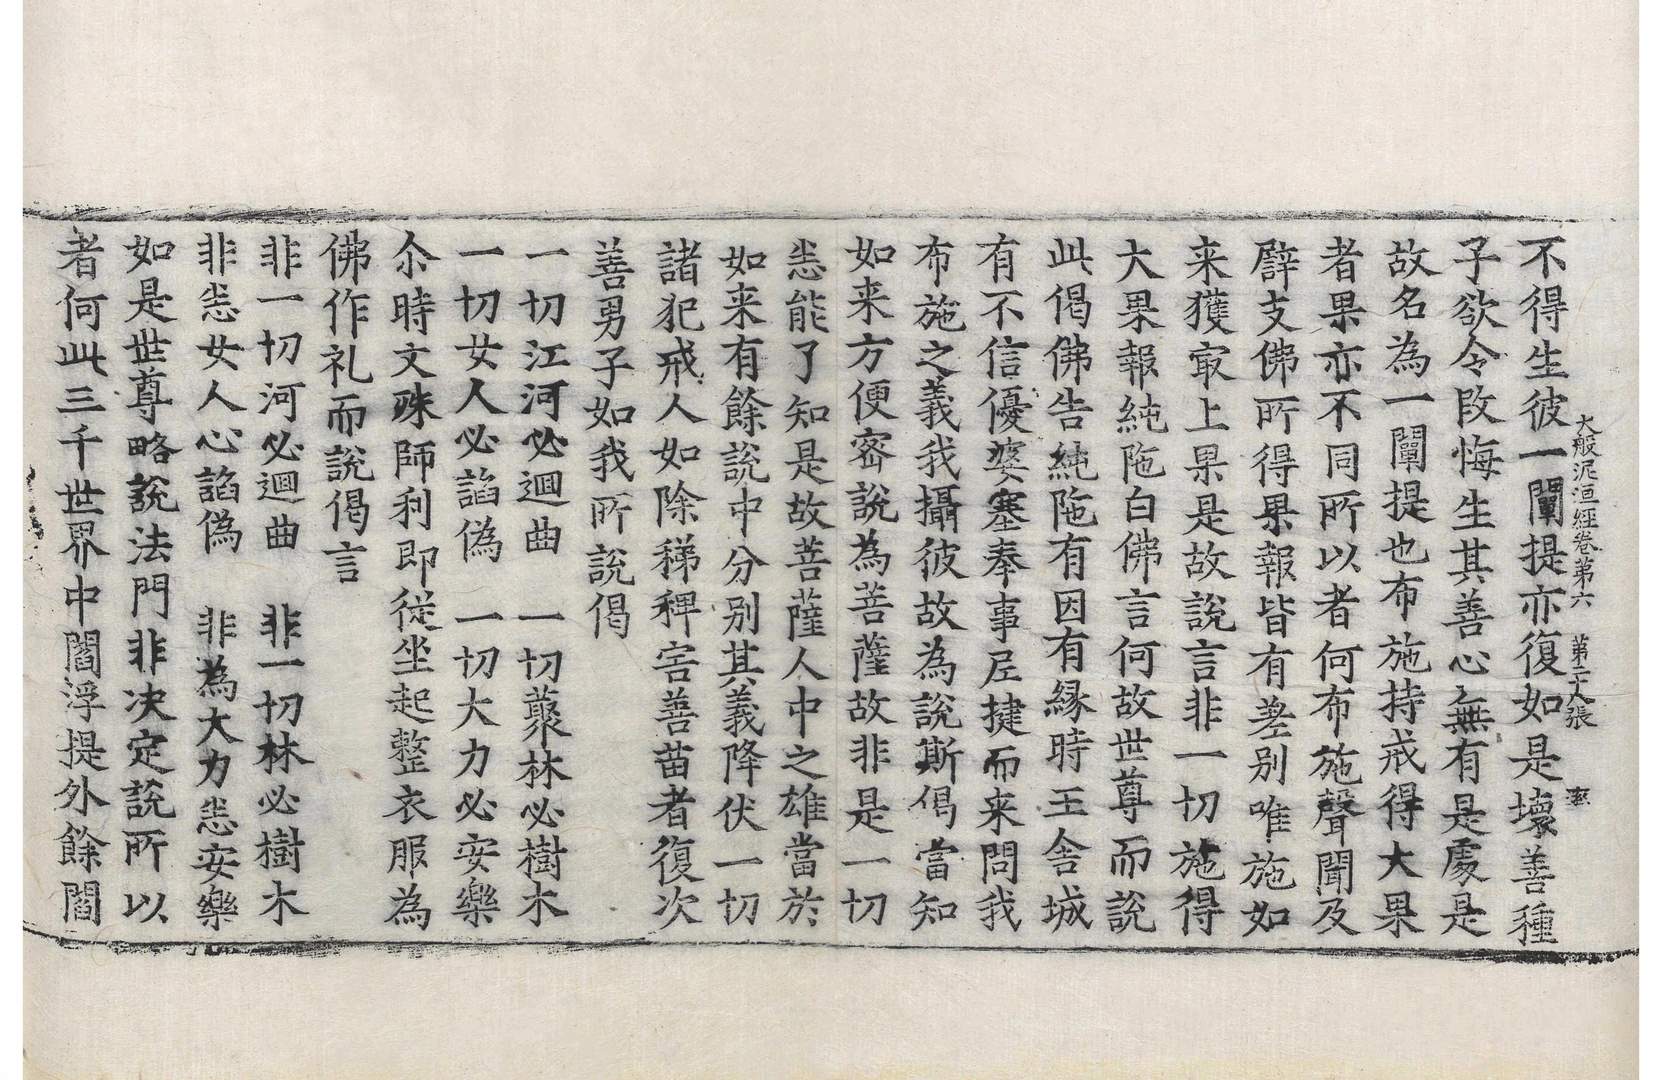 大般泥洹經卷第六　第二十八張　率
不得生彼一闡提亦復如是壞善種
子欲令改悔生其善心無有是處是
故名為一闡提也布施持戒得大果
者果亦不同所以者何布施聲聞及
辟支佛所得果報皆有差别唯施如
来獲㝡上果是故說言非一切施得
大果報純陁白佛言何故世尊而說
此偈佛告純陁有因有縁時王舍城
有不信優婆塞奉事尼揵而来問我
布施之義我攝彼故為說斯偈當知
如来方便宻說為菩薩故非是一切
悉能了知是故菩薩人中之雄當於
如来有餘說中分别其義降伏一切
諸犯戒人如除稊稗害善苗者復次
善男子如我所說偈
一切江河必迴曲　一切藂林必樹木
一切女人必諂偽　一切大力必安樂
尒時文殊師利即從坐起整衣服為
佛作礼而說偈言
非一切河必迴曲　非一切林必樹木
非悉女人心諂偽　非為大力悉安樂
如是世尊略說法門非决定說所以
者何此三千世界中閻浮提外餘閻